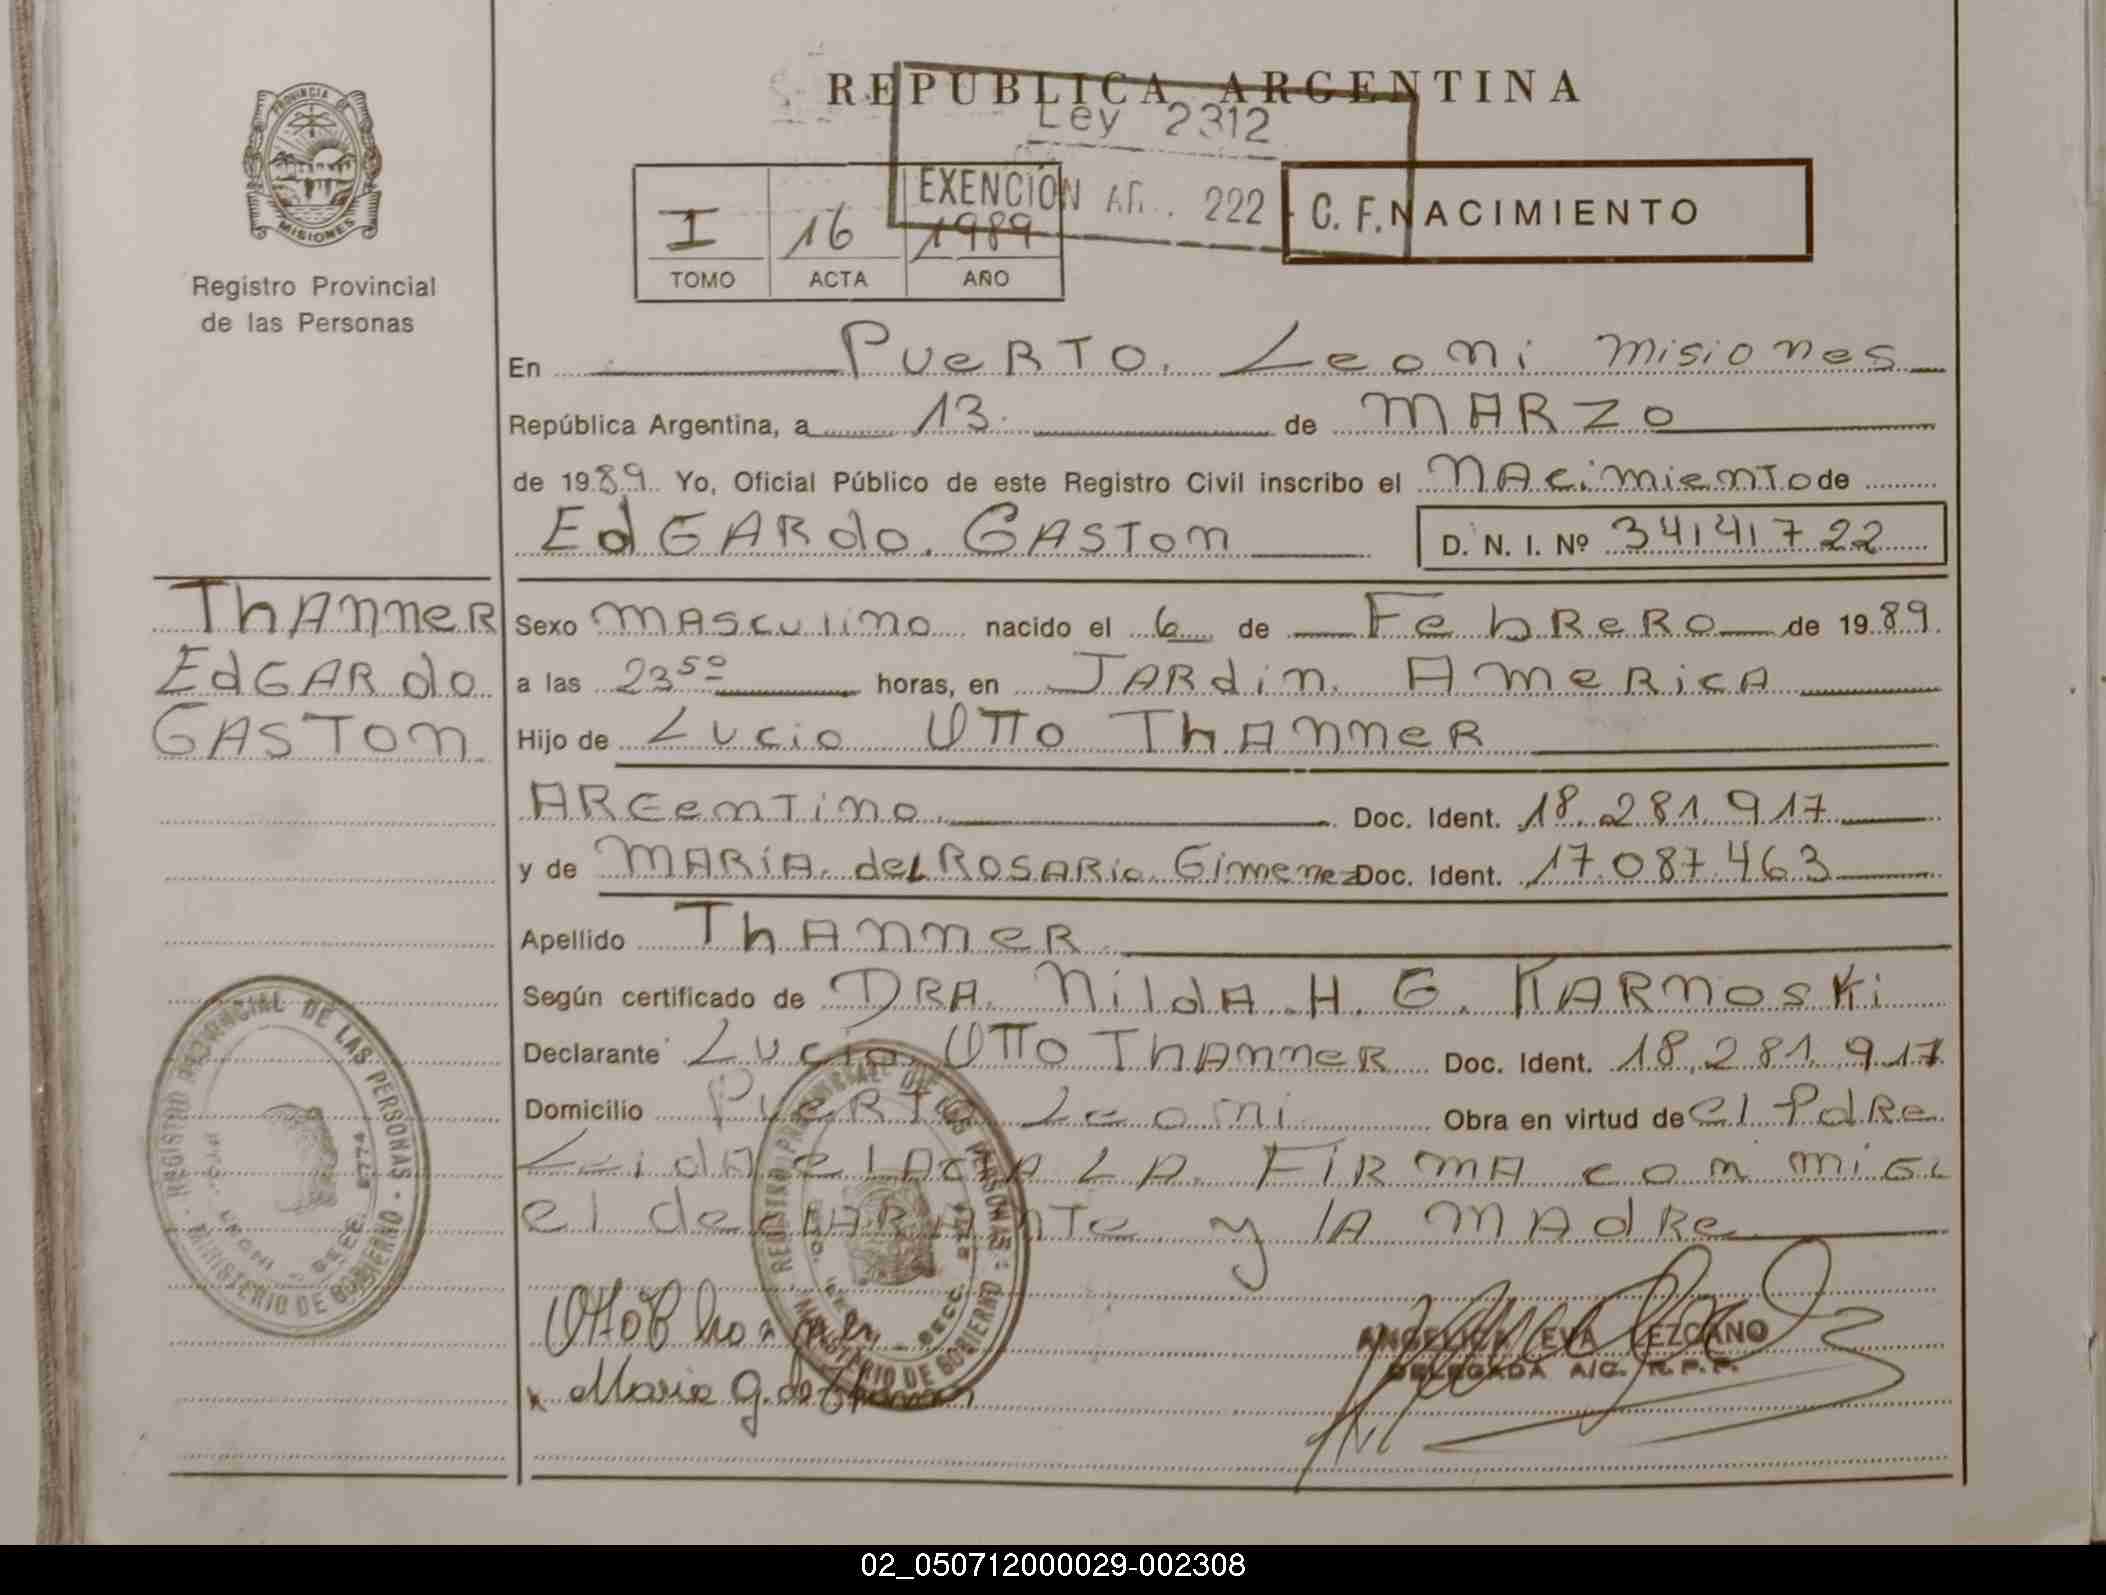 REPUBLICA ARGENTINA
Ley 2312
EXENCIÓN AR. 222 C. F.
NACIMIENTO
PROVINCIA DE
MISIONES
Registro Provincial
de las Personas
I 16 1989
TOMO ACTA AÑO
En Puerto Leoni Misiones
República Argentina, a 13 de MARZO
de 1989 Yo, Oficial Público de este Registro Civil inscribo el NAcimiento de
EdGARdo GASTON D. N. I. Nº 34141722
THANNER
EdGARdo
GASTON
Sexo MASCULINO nacido el 6 de FebReRO de 1989
a las 23 50 horas, en JARdin AmeRicA
Hijo de Lucio Otto THANNER
ARGentino Doc. Ident. 18.281.917
y de MARIA del ROSARio Gimenez Doc. Ident. 17.087.463
Apellido THANNER
Según certificado de DRA. Nilda H. G. KARNOSKi
Declarante Lucio Otto THANNER Doc. Ident. 18.281.917
Domicilio Puerto Leoni Obra en virtud de el PdRe
Leida el Acta LA FIRMA con miGo
el declarante y lA MAdRe
REGISTRO PROVINCIAL DE LAS PERSONAS
MINISTERIO DE GOBIERNO
REGISTRO PROVINCIAL DE LAS PERSONAS
MINISTERIO DE GOBIERNO
Maria G. de
ANGELICA EVA LEZCANO
DELEGADA A/C. R.P.P.
02_050712000029-002308